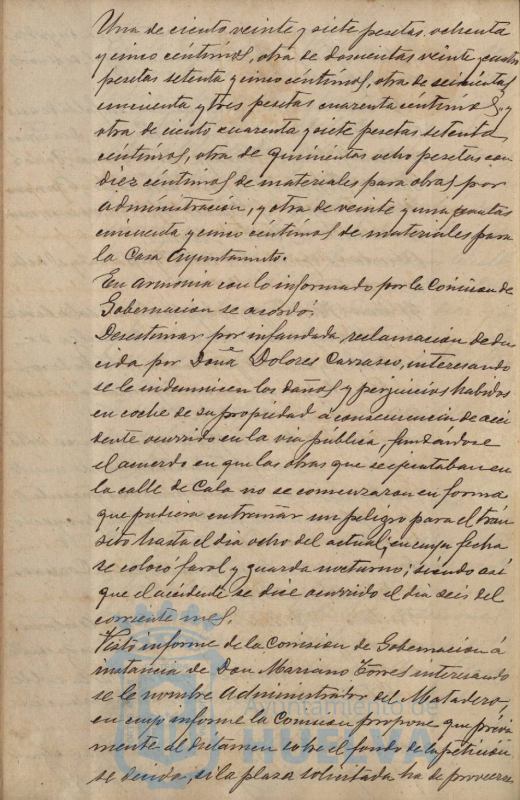 Una de ciento veinte y siete pesetas ochenta
y cinco céntimos, otra de doscientas veinte y cuatro
pesetas setenta y cinco céntimos, otra de seiscientas
cincuenta y tres pesetas cuarenta céntimos, y
otra de ciento cuarenta y siete pesetas setenta
céntimos, otra de quinientas ocho pesetas con
diez céntimos de materiales para obras por
administración, y otra de veinte y una pesetas
cincuenta y cinco céntimos de materiales para
la Casa Ayuntamiento.
En armonia con lo informado por la Comision de
Gobernacion se acordó:
Desestimar por infundada reclamacion dedu
cida por Doña Dolores Carrasco, interesando
se le indemnicen los daños y perjuicios habidos
en coche de su propiedad á consecuencia de acci
dente ocurrido en la via pública, fundándose
el acuerdo en que las obras que se ejecutaban en
la calle de Cala no se comenzaron en forma
que pudiera entrañar un peligro para el trán
sito hasta el dia ocho del actual, en cuya fecha
se colocó farol y guarda nocturno; siendo asi
que el accidente se dice ocurrido el dia seis del
corriente mes.
Visto informe de la Comision de Gobernacion á
instancia de Don Mariano Torres interesando
se le nombre Administrador del Matadero,
en cuyo informe la Comision propone que prévia
mente al dictamen sobre el fondo de la peticion
se decida, si la plaza solicitada ha de proveerse
Ayuntamiento de
HUELVA